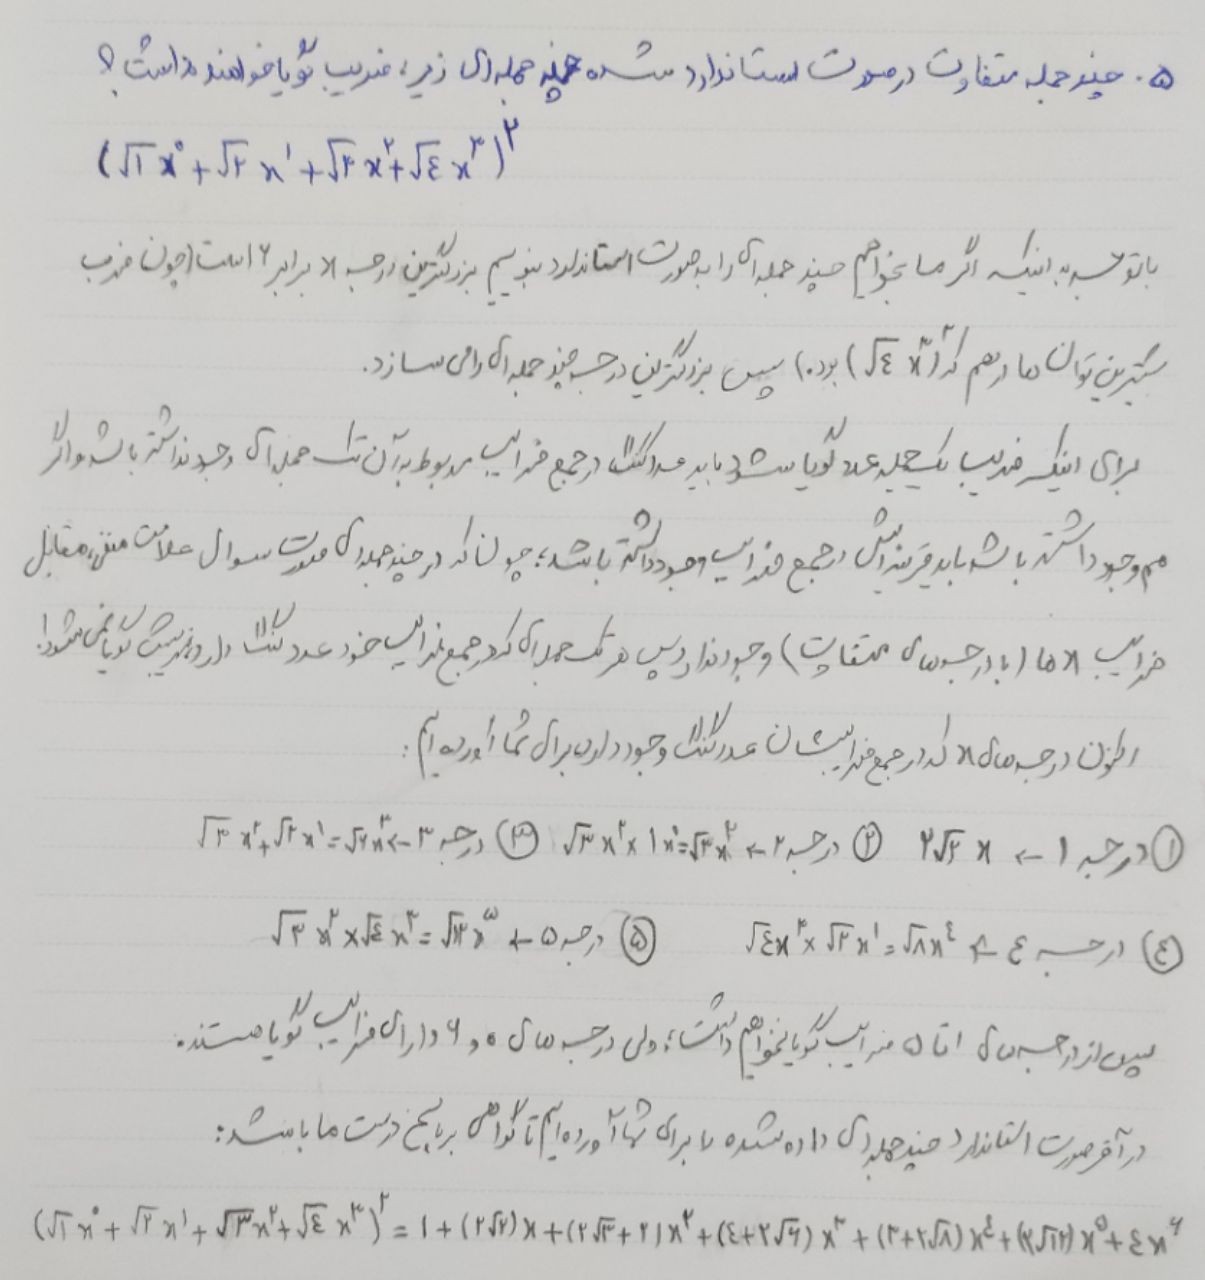 ۵. چند جمله متفاوت در صورت استاندارد شده چند جمله‌ای زیر، ضریب گویا خواهند داشت؟
(√۱ x⁰ + √۲ x¹ + √۳ x² + √٤ x³)²
با توجه به اینکه اگر ما بخواهیم چند جمله‌ای را به صورت استاندارد بنویسیم بزرگترین درجه x برابر ۶ است (چون ضرب
بیشترین توان ها در هم که (√٤ x³)² بود.) پس بزرگترین درجه چند جمله‌ای را می سازد.
برای اینکه ضریب یک جمله عدد گویا شود باید عدد گنگ در جمع ضرایب مربوط به آن تک جمله‌ای وجود نداشته باشد و اگر
هم وجود داشته باشد باید قرینه‌اش در جمع ضرایب وجود داشته باشد؛ چون که در چند جمله‌ای صورت سوال علامت منفی مقابل
ضرایب x ها (با درجه‌های متفاوت) وجود ندارد پس هر تک جمله‌ای که در جمع ضرایب خود عدد گنگ دارد ضریبش گویا نمی‌شود!
اکنون درجه‌های x که در جمع ضرایبشان عدد گنگ وجود دارد برای شما آورده‌ایم:
① درجه ۱ ← ۲√۲ x ② درجه ۲ ← √۳ x² × ۱x⁰ = √۳x² ③ درجه ۳ ← √۳ x² + √۲ x¹ = √۶x³
④ درجه ٤ ← √٤x³ × √۲ x¹ = √۸x⁴ ⑤ درجه ۵ ← √۳ x² × √٤ x³ = √۱۲x⁵
پس از درجه‌های ۱ تا ۵ ضرایب گویا نخواهیم داشت؛ ولی درجه های ۰ و ۶ دارای ضرایب گویا هستند.
در آخر صورت استاندارد چند جمله‌ای داده شده را برای شما آورده‌ایم تا گواهی بر پاسخ درست ما باشد:
(√۱ x⁰ + √۲ x¹ + √۳ x² + √٤ x³)² = ۱ + (۲√۲)x + (۲√۳ + ۲)x² + (٤+۲√۶) x³ + (۳+۲√۸) x⁴ + (۲√۱۲) x⁵ + ٤x⁶